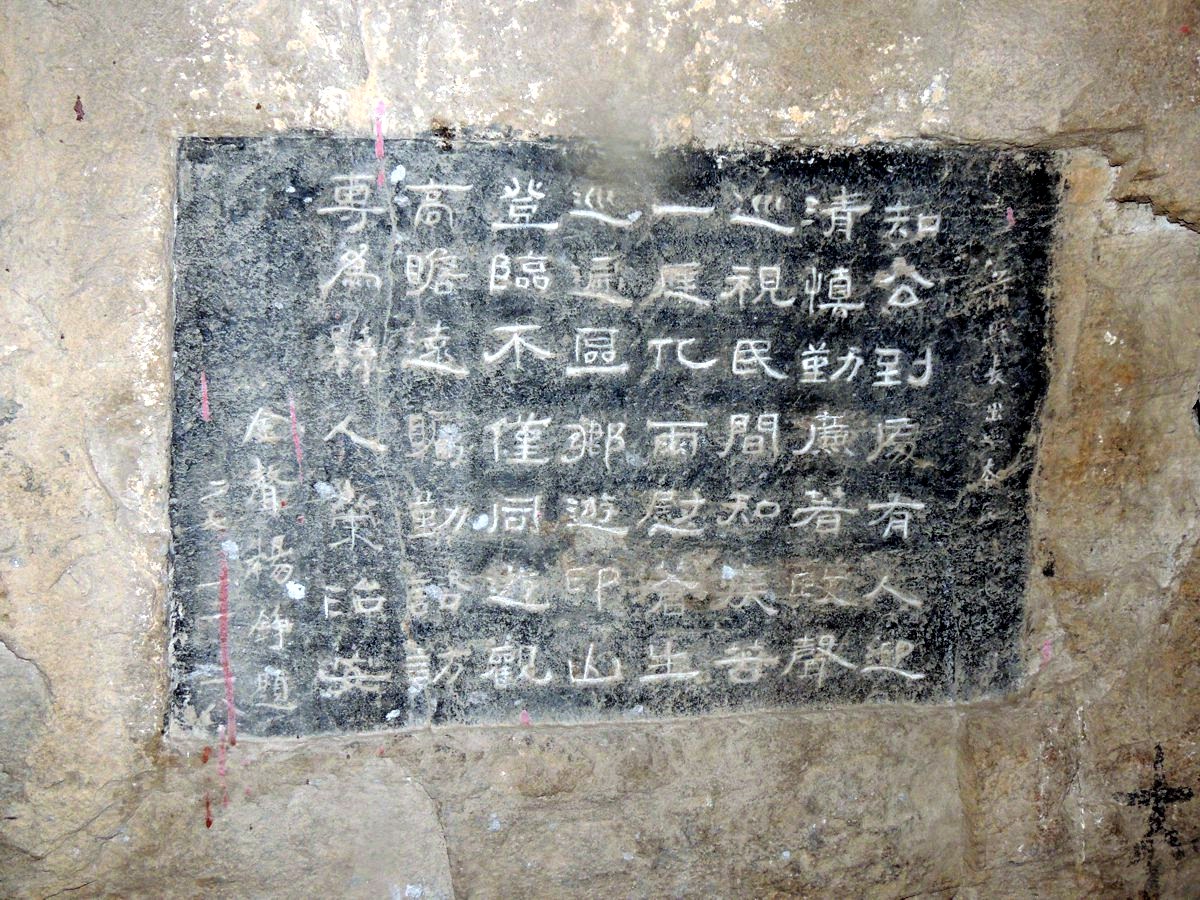 知公到處有人迎
清慎勤廉著政聲
巡視民間知疾苦
一庭化雨慰蒼生
巡遍區鄉遊印山
登臨不僅同遊觀
高瞻遠矚勤諮訪
專為群人策治安
金聲楊錚題